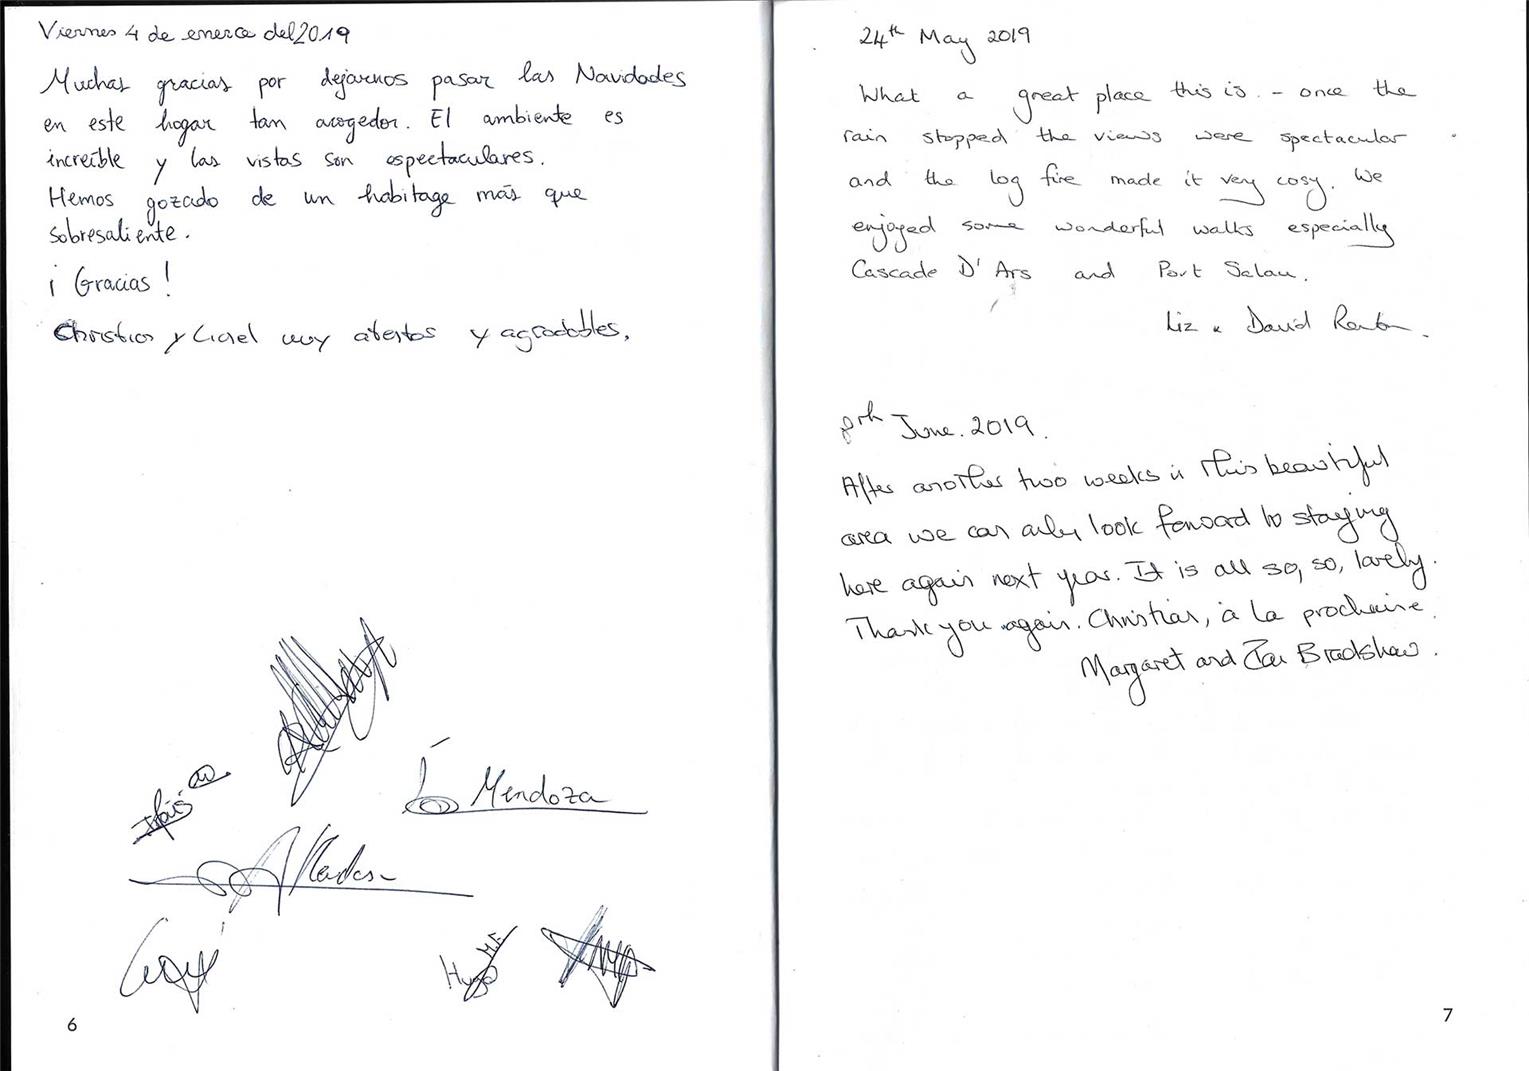 Viernes 4 de enero del 2019
Muchas gracias por dejarnos pasar las Navidades
en este hogar tan acogedor. El ambiente es
increíble y las vistas son espectaculares.
Hemos gozado de un habitage más que
sobresaliente.
¡Gracias!
y muy abertos y agradables.
Mendoza
Hugo M.F.
6
24th May 2019
What a great place this is - once the
rain stopped the views were spectacular
and the log fire made it very cosy. We
enjoyed some wonderful walks especially
Cascade D'Ars and Port Salau.
Liz & David Renton.
8th June. 2019.
After another two weeks in this beautiful
area we can only look forward to staying
here again next year. It is all so, so, lovely.
Thank you again. Christian, à la prochaine.
Margaret and Ian Bradshaw.
7